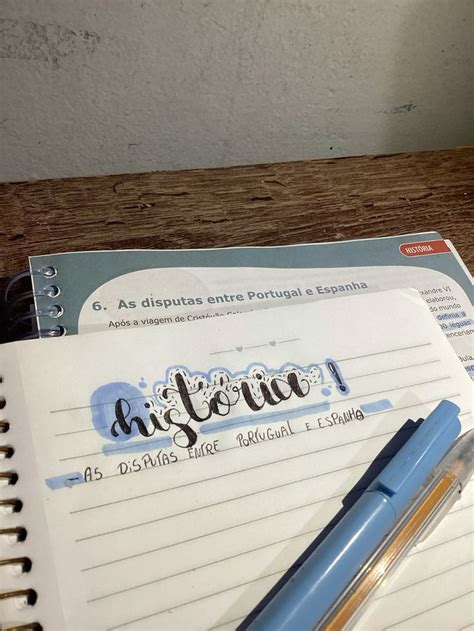 HISTÓRIA
6. As disputas entre Portugal e Espanha
Após a viagem de Cristóvão
xandre VI
elaborou,
do mundo
definia a
léguas
história!
- AS DISPUTAS ENTRE PORTUGUAL E ESPANHA